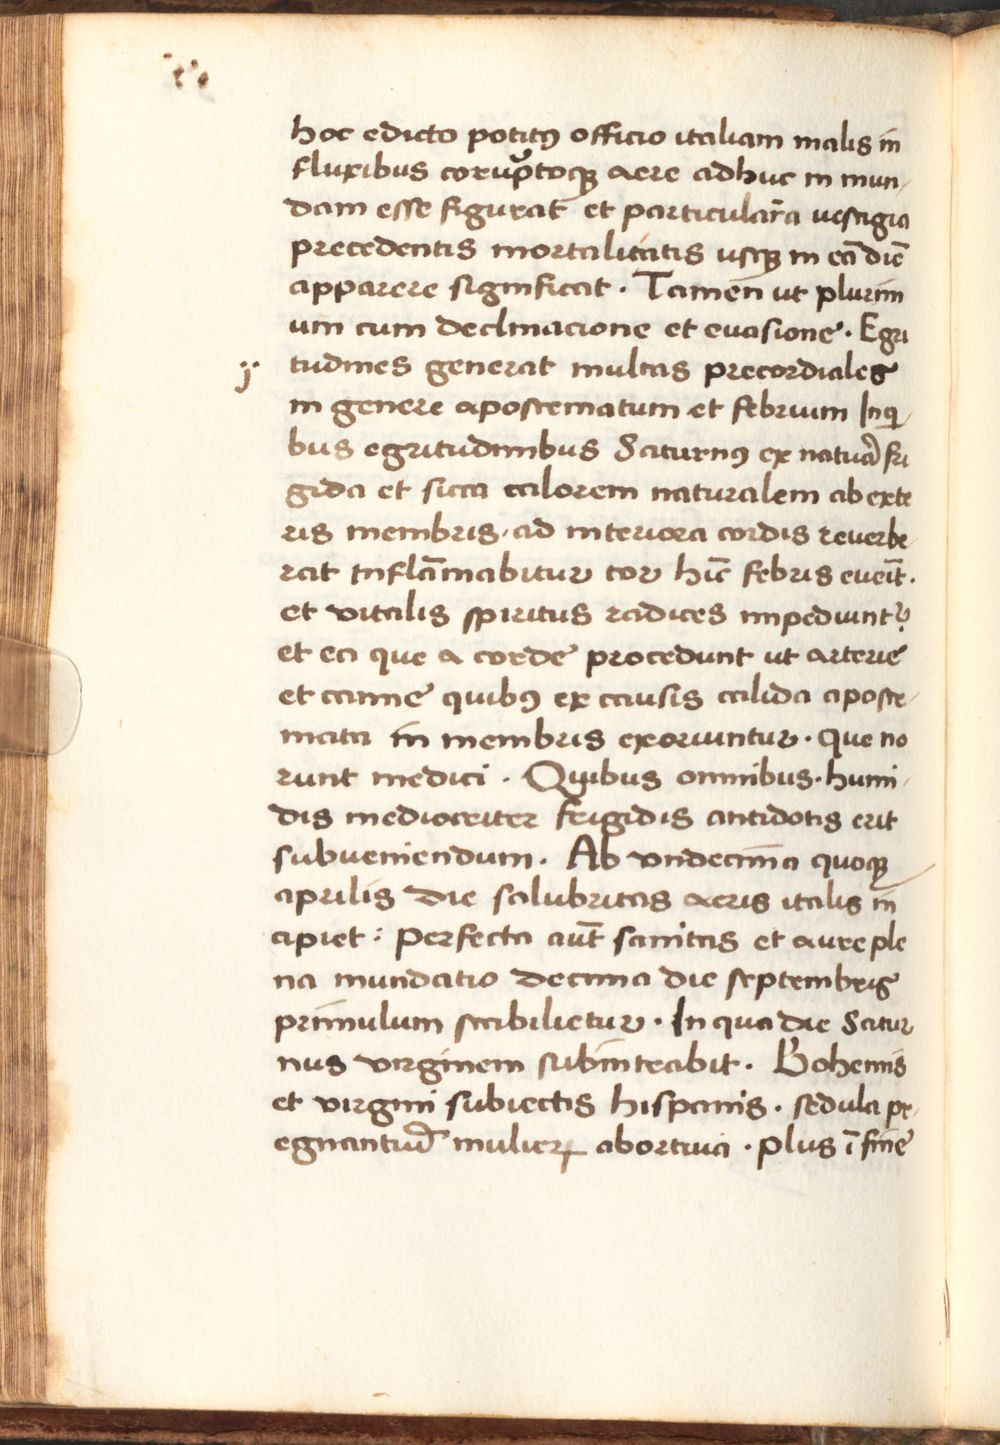 hoc edicto potitꝰ officio italiam malis in
fluxibus coruptoqꝫ aere adhuc in mun-
dam esse figurat et particularia vestigia
precedentis mortalitatis usqꝫ in eā diē
apparere significat · Tamen ut plurim
um cum declinacione et evasione · Egri
ij tudines generat multas precordiales
in genere apostematum et febrium Inqͥ-
bus egritudinibus Saturnꝰ ex natura fri
gida et sicca calorem naturalem ab exte
ris membris · ad interiora cordis reverbe-
rat Inflāmabitur cor hīc febris eveīt ·
et vitalis spiritus radices impediunt᷑
et ea que a corde procedunt ut arterie
et canne quibꝰ ex causis calida aposte-
mata in membris exoriuntur · Que no
runt medici · Quibus omnibus · humi-
dis mediocriter frigidis antidotis erit
subveniendum · Ab vndecima quoqꝫ
aprilis die salubritas aeris italis in
cipiet : Perfecta aūt sanitas et aure ple
na mundatio decima die septembris
primulum stabilietur · In qua die Satur
nus virginem subintrabit · Bohemis
et virgini subiectis hispanis · sedula pr-
egnantiū mulieꝝ abortiva · plus ī fine